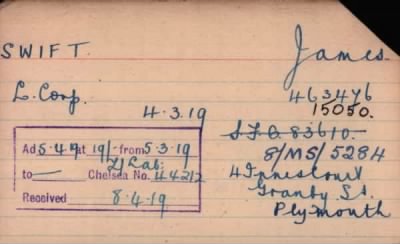 SWIFT. James.
L. Corp. 463476
4.3.19 15050.
S.F.A. 83610.
Ad 5.4.19 at 19/- from 5.3.19
to — Chelsea No. 44212
Received 8.4.19
8/MS/5284
Granby St.
Plymouth